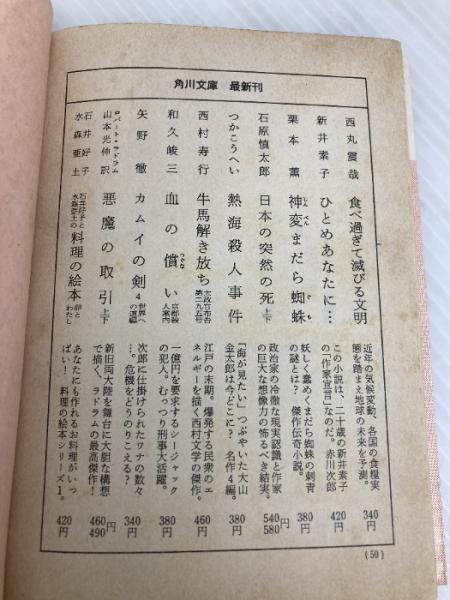 角川文庫 最新刊
西丸震哉 食べ過ぎて滅びる文明 近年の気候変動、各国の食糧実態を踏まえ地球の未来を予測。 340円
新井素子 ひとめあなたに… この小説は、二十歳の新井素子の「作家宣言」なのだ。赤川次郎 420円
栗本薫 神変まだら蜘蛛 しんぺん ぐも 妖しく蠢めくまだら蜘蛛の刺青の謎とは? 傑作伝奇小説。 380円
石原慎太郎 日本の突然の死 上下 政治家の冷徹な現実認識と作家の巨大な想像力の怖るべき結実。 540円 580円
つかこうへい 熱海殺人事件 「海が見たい」つぶやいた大山金太郎は今どこに? 名作4編。 380円
西村寿行 牛馬解き放ち 太政官布告第二九五号 江戸の末期。爆発する民衆のエネルギーを描く西村文学の傑作。 460円
和久峻三 血の償い つぐない 京都殺人案内 一億円を要求するシージャックの犯人。むっつり刑事大活躍。 380円
矢野徹 カムイの剣 4 世界への道編 次郎に仕掛けられたワナの数々…。危機をどうのりこえる? 340円
ロバート・ラドラム 山本光伸訳 悪魔の取引 上下 新旧両大陸を舞台に大胆な構想で描く、ラドラムの最高傑作! 460円 490円
石井好子 水森亜土 石井好子と水森亜土の料理の絵本 卵とわたし あなたにも作れるお料理がいっぱい! 料理の絵本シリーズ1。 420円
(50)